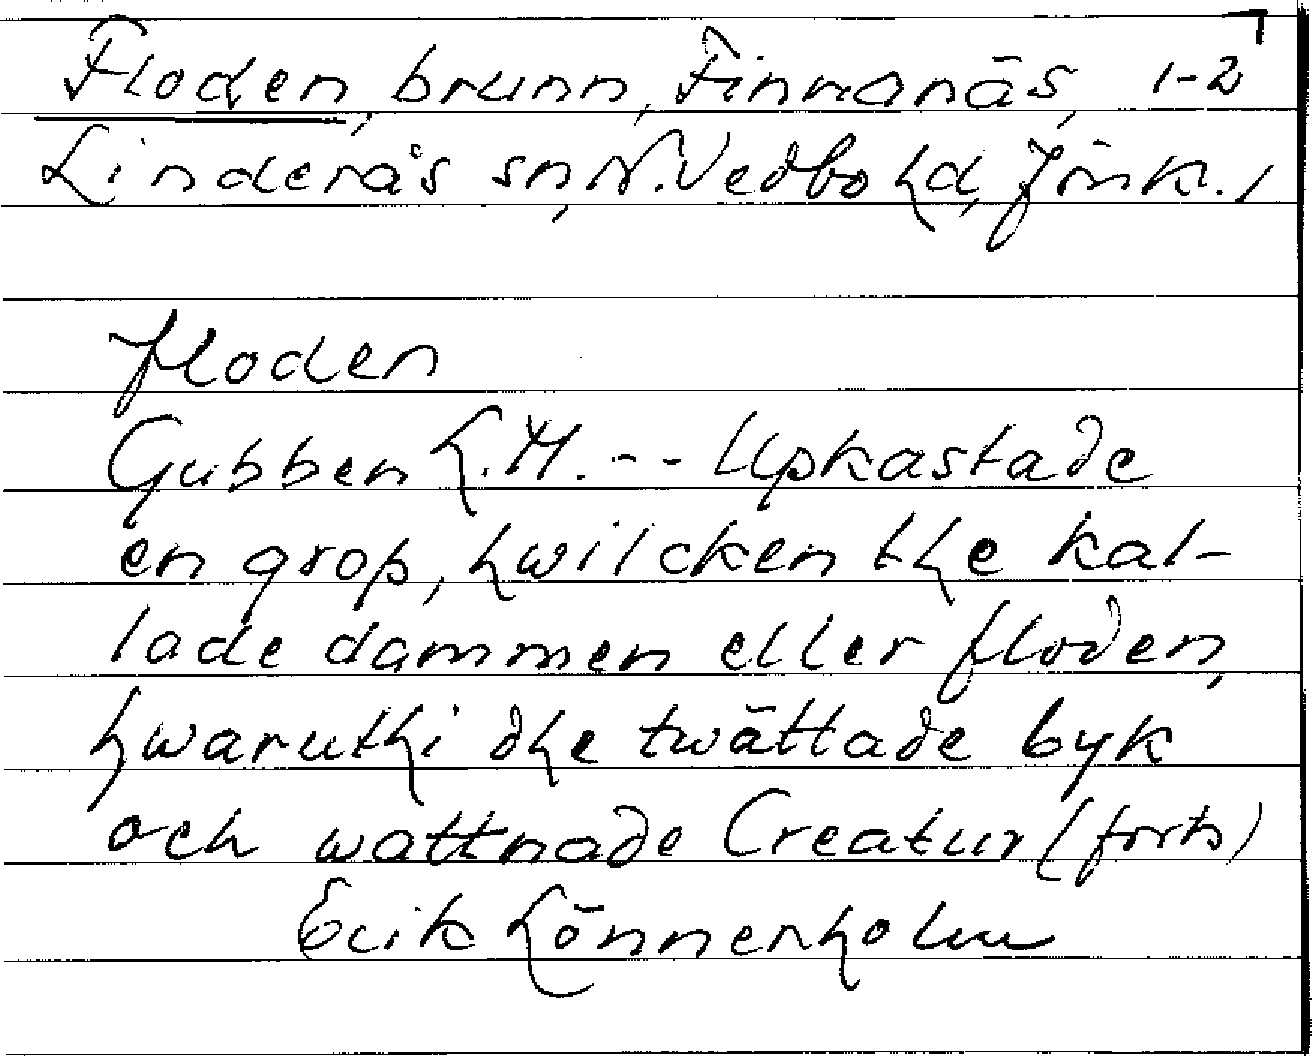 Floden, brunn, Finnanäs, 1-2
Linderås sn, N. Vedbo hd, Jönk. l
floden
Gubben L.M. -- Upkastade
en grop, hwilcken the kal-
lade dammen eller floden,
hwaruthi dhe twättade byk
och wattnade Creatur (forts)
Erik Lönnerholm